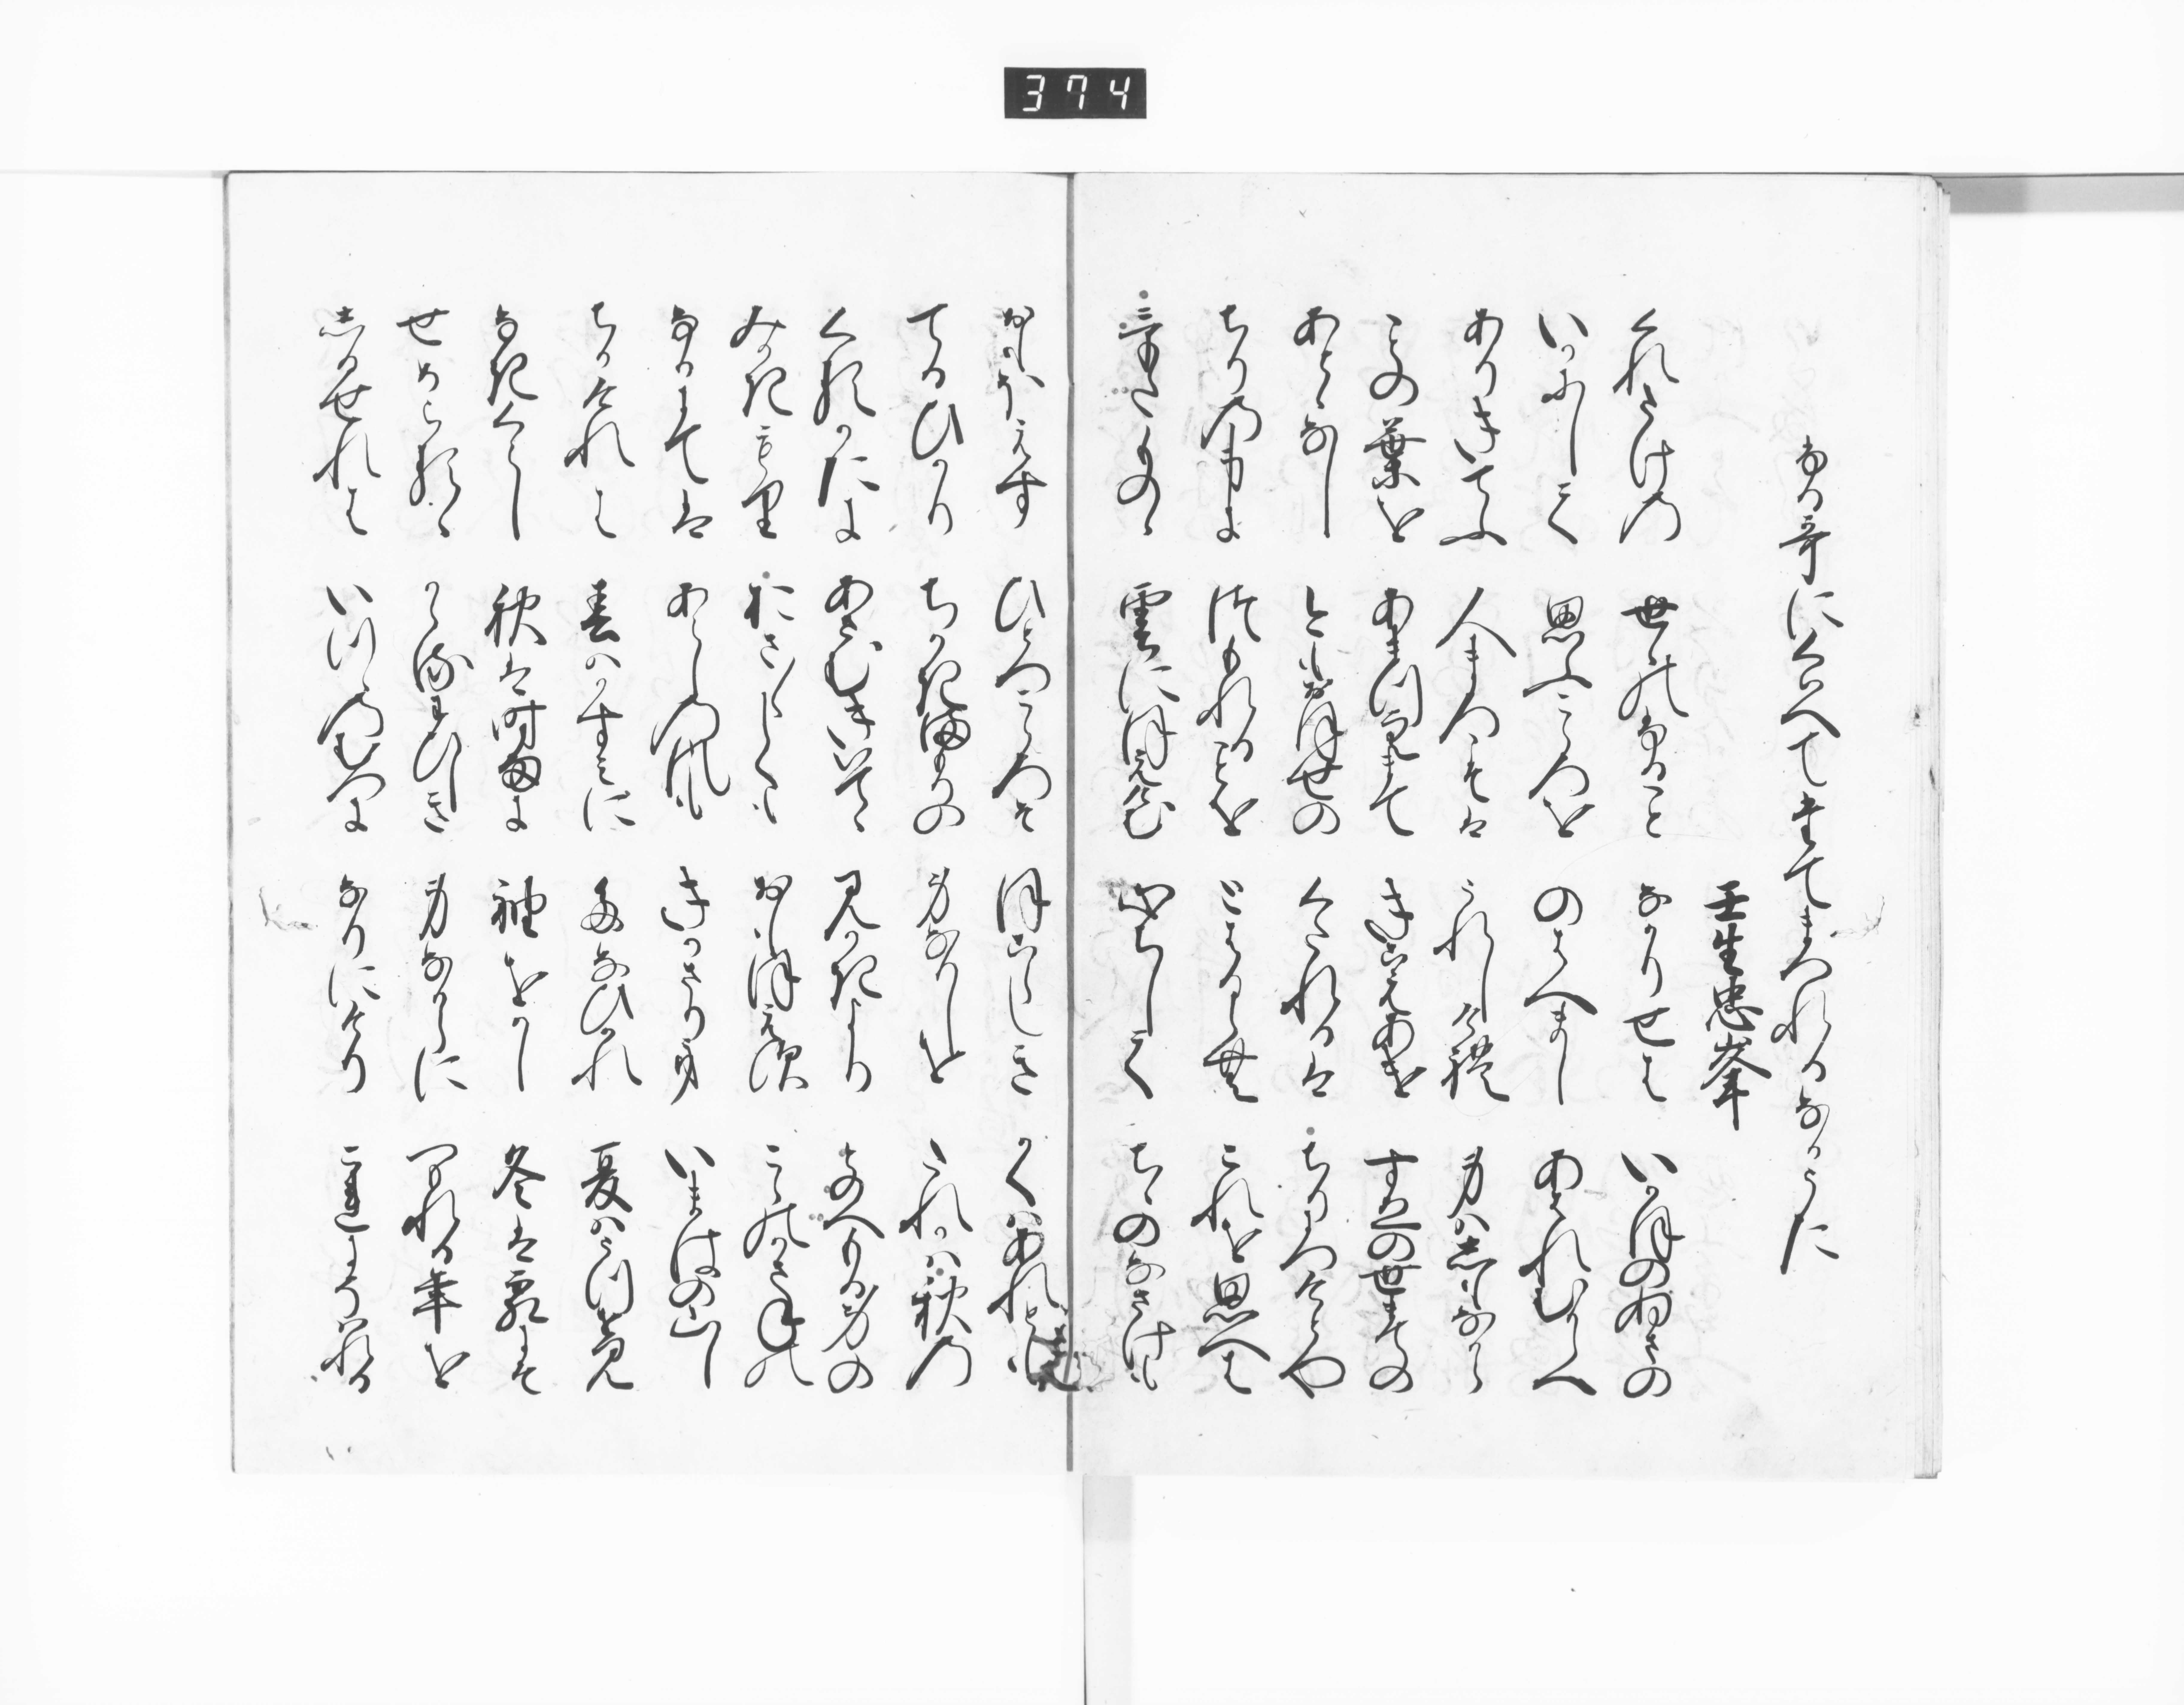 374
ふる哥にくはへてたてまつれるなかうた
壬生忠峯
くれたけの 世々のふること なかりせは いかほのぬまの
いかにして 思ふこゝろを のはへまし あはれむかしへ
ありきてふ 人まろこそは うれしけれ 身はしもなから
ことの葉を あまつ空まて きこえあけ すゑの世まての
あとゝなし いまもおほせの くたれるは ちりにつけとや
ちりの身に つもれることを とはるらむ これを思へは
けたものゝ 雲にほえけむ 心ちして ちゝのなさけも
おもほえす ひとつこゝろそ ほこらしき かくはあれとも
てるひかり ちかきまもりの 身なりしを たれかは秋の
くるかたに あさむきいてゝ みかきより とのへもる身の
みかきもり おさ〳〵しくも おもほえす こゝのかさねの
なかにては あらしの風も きかさりき いまはの山し
ちかけれは 春はかすみに たなひかれ 夏はうつせみ
なきくらし 秋は時雨に 袖をかし 冬は霜にそ
せめらるゝ かゝるわひしき 身なからに つもれる年を
しるせれは いつゝのむつに なりにけり これにそはれる